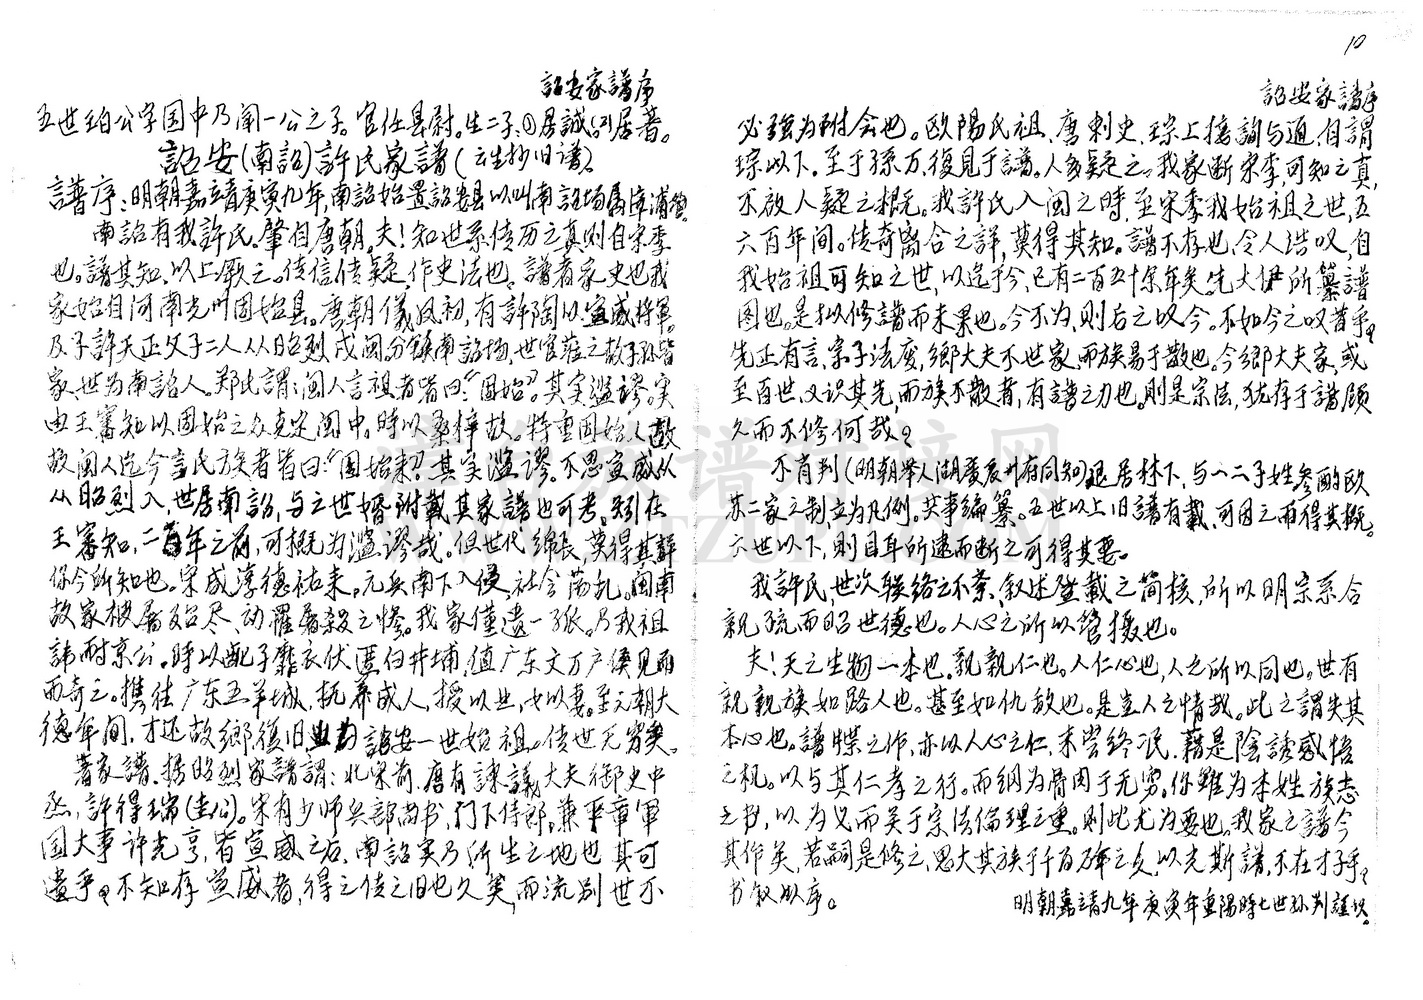 詔安家譜序
五世珀公字国中乃闻一公之子。官任县尉。生二子:①居誠(2)居著。
詔安(南詔)許氏家譜(云生抄旧谱)
譜序:明朝嘉靖庚寅九年,南詔始置詔安县以叫南詔场属漳浦管。
南詔有我許氏。肇自唐朝。夫!知世系传历之真则自宋季
也。譜其知,以上厥之。传信传疑,作史法也。譜者家史也我
家始自河南光州固始县。唐朝儀凤初,有許陶以宣威将軍。
及子許天正父子二人从昭烈戍闽分鎮南詔场,世官莅之故子孙皆
家,世为南詔人。郑此謂:闽人言祖者皆曰:"固始"。其实滥謬。实
由王審知以固始之众克定闽中。時以桑梓故。特重固始人故
故闽人迄今言氏族者皆曰:"固始来"。其实滥謬。不思宣威从
从昭烈入,世居南詔,与之世婚附載其家譜也可考。矧在
王審知,二百年之前,可概为滥謬哉。但世代绵長,莫得其詳
你今所知也。宋咸淳德祐末,元兵南下入侵,社会荡乱。闽南
故家被屠殆尽、动罹屠殺之惨。我家僅遺一孤。乃我祖
諱耐京公。時以配子靡衣伏匿白井埔,值广东文万户侯见而
而奇之。携往广东五羊城,抚养成人,授以业,女以妻。至元朝大
德年間,才还故鄉復旧业为詔安一世始祖。传世无穷矣。
著家譜.按昭烈家譜謂:北梁前.唐有諫議大夫御史中
丞,許得瑞(圭公)。宋有少师兵部尚书,门下侍郎,兼平章軍
国大事許光亨,皆宣威之后,南詔实乃所生之地也其可
遺乎?不知存宣威者,得之传之旧也久矣,而流别世不
10
詔安家譜序
必强为附会也。欧陽氏祖、唐刺史,琮上接詢与通,自謂
琮以下,至于孫万,復見于譜。人多疑之。我家断宋季,可知之真,
不啟人疑之根元。我許氏入闽之時,至宋季我始祖之世,五
六百年间。传奇离合之詳,莫得其知。譜不存也,令人浩叹,自
我始祖可知之世,以迄于今,已有二百五十余年矣。先大伊所纂譜
图也。是拟修譜而未果也。今不为,则后之叹今。不如今之叹昔乎?
先正有言、宗子法廢,鄉大夫不世家,而族易于散也。今鄉大夫家,或
至百世,又识其先,而族不散者,有譜之力也。則是宗法,犹存于譜顾
久而不修何哉?
不肖判(明朝举人湖廣廣州府同知)退居林下,与一二子姓参酌欧
苏二家之制立为凡例。共事編纂。五世以上旧譜有載,可因之而得其概。
六世以下,則目耳所逮而断之可得其要。
我許氏,世次联络之不紊、叙述登載之简核,所以明宗系合
親疏而昭世德也。人心之所以管摄也。
夫!天之生物一本也。親親仁也。人仁心也,人之所以同也。世有
親親族如路人也。甚至如仇敌也。是豈人之情哉。此之謂失其
本心也。譜牒之作,亦以人心之仁,未尝终泯,藉是陰誘感悟
之机。以与其仁孝之行。而綱为骨肉于无穷。你雖为本姓族志
之书,以为义而关于宗法倫理之重。则此尤为要也。我家之譜今
其作矣,若嗣是修之,思大其族于千百万年之久,以光斯譜,不在才子乎?
书叙以序。
明朝嘉靖九年庚寅年重陽時七世孙判謹识。